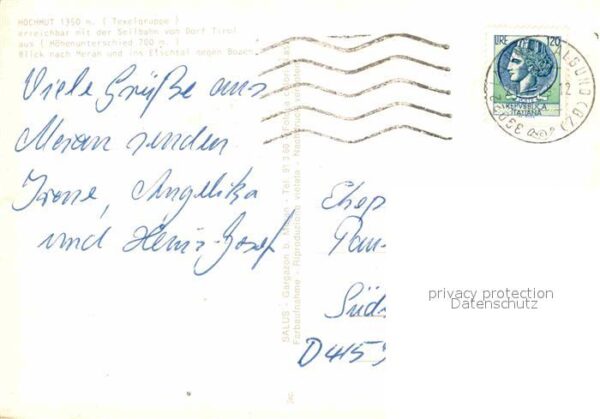 HOCHMUT 1350 m. ( Texelgruppe )
erreichbar mit der Seilbahn von Dorf Tirol
aus ( Höhenunterschied 700 m. )
Blick nach Meran und ins Etschtal gegen Bozen.
Viele Grüße aus
Meran senden
Irene, Angelika
und Heinz-Josef
SALUS - Gargazon b. Meran - Tel.
Farbaufnahme - Riproduzione vietata - Nachdruck
LIRE 120
REPUBBLICA
ITALIANA
39022
(BZ)
Ehep
Süd
D415
privacy protection
Datenschutz